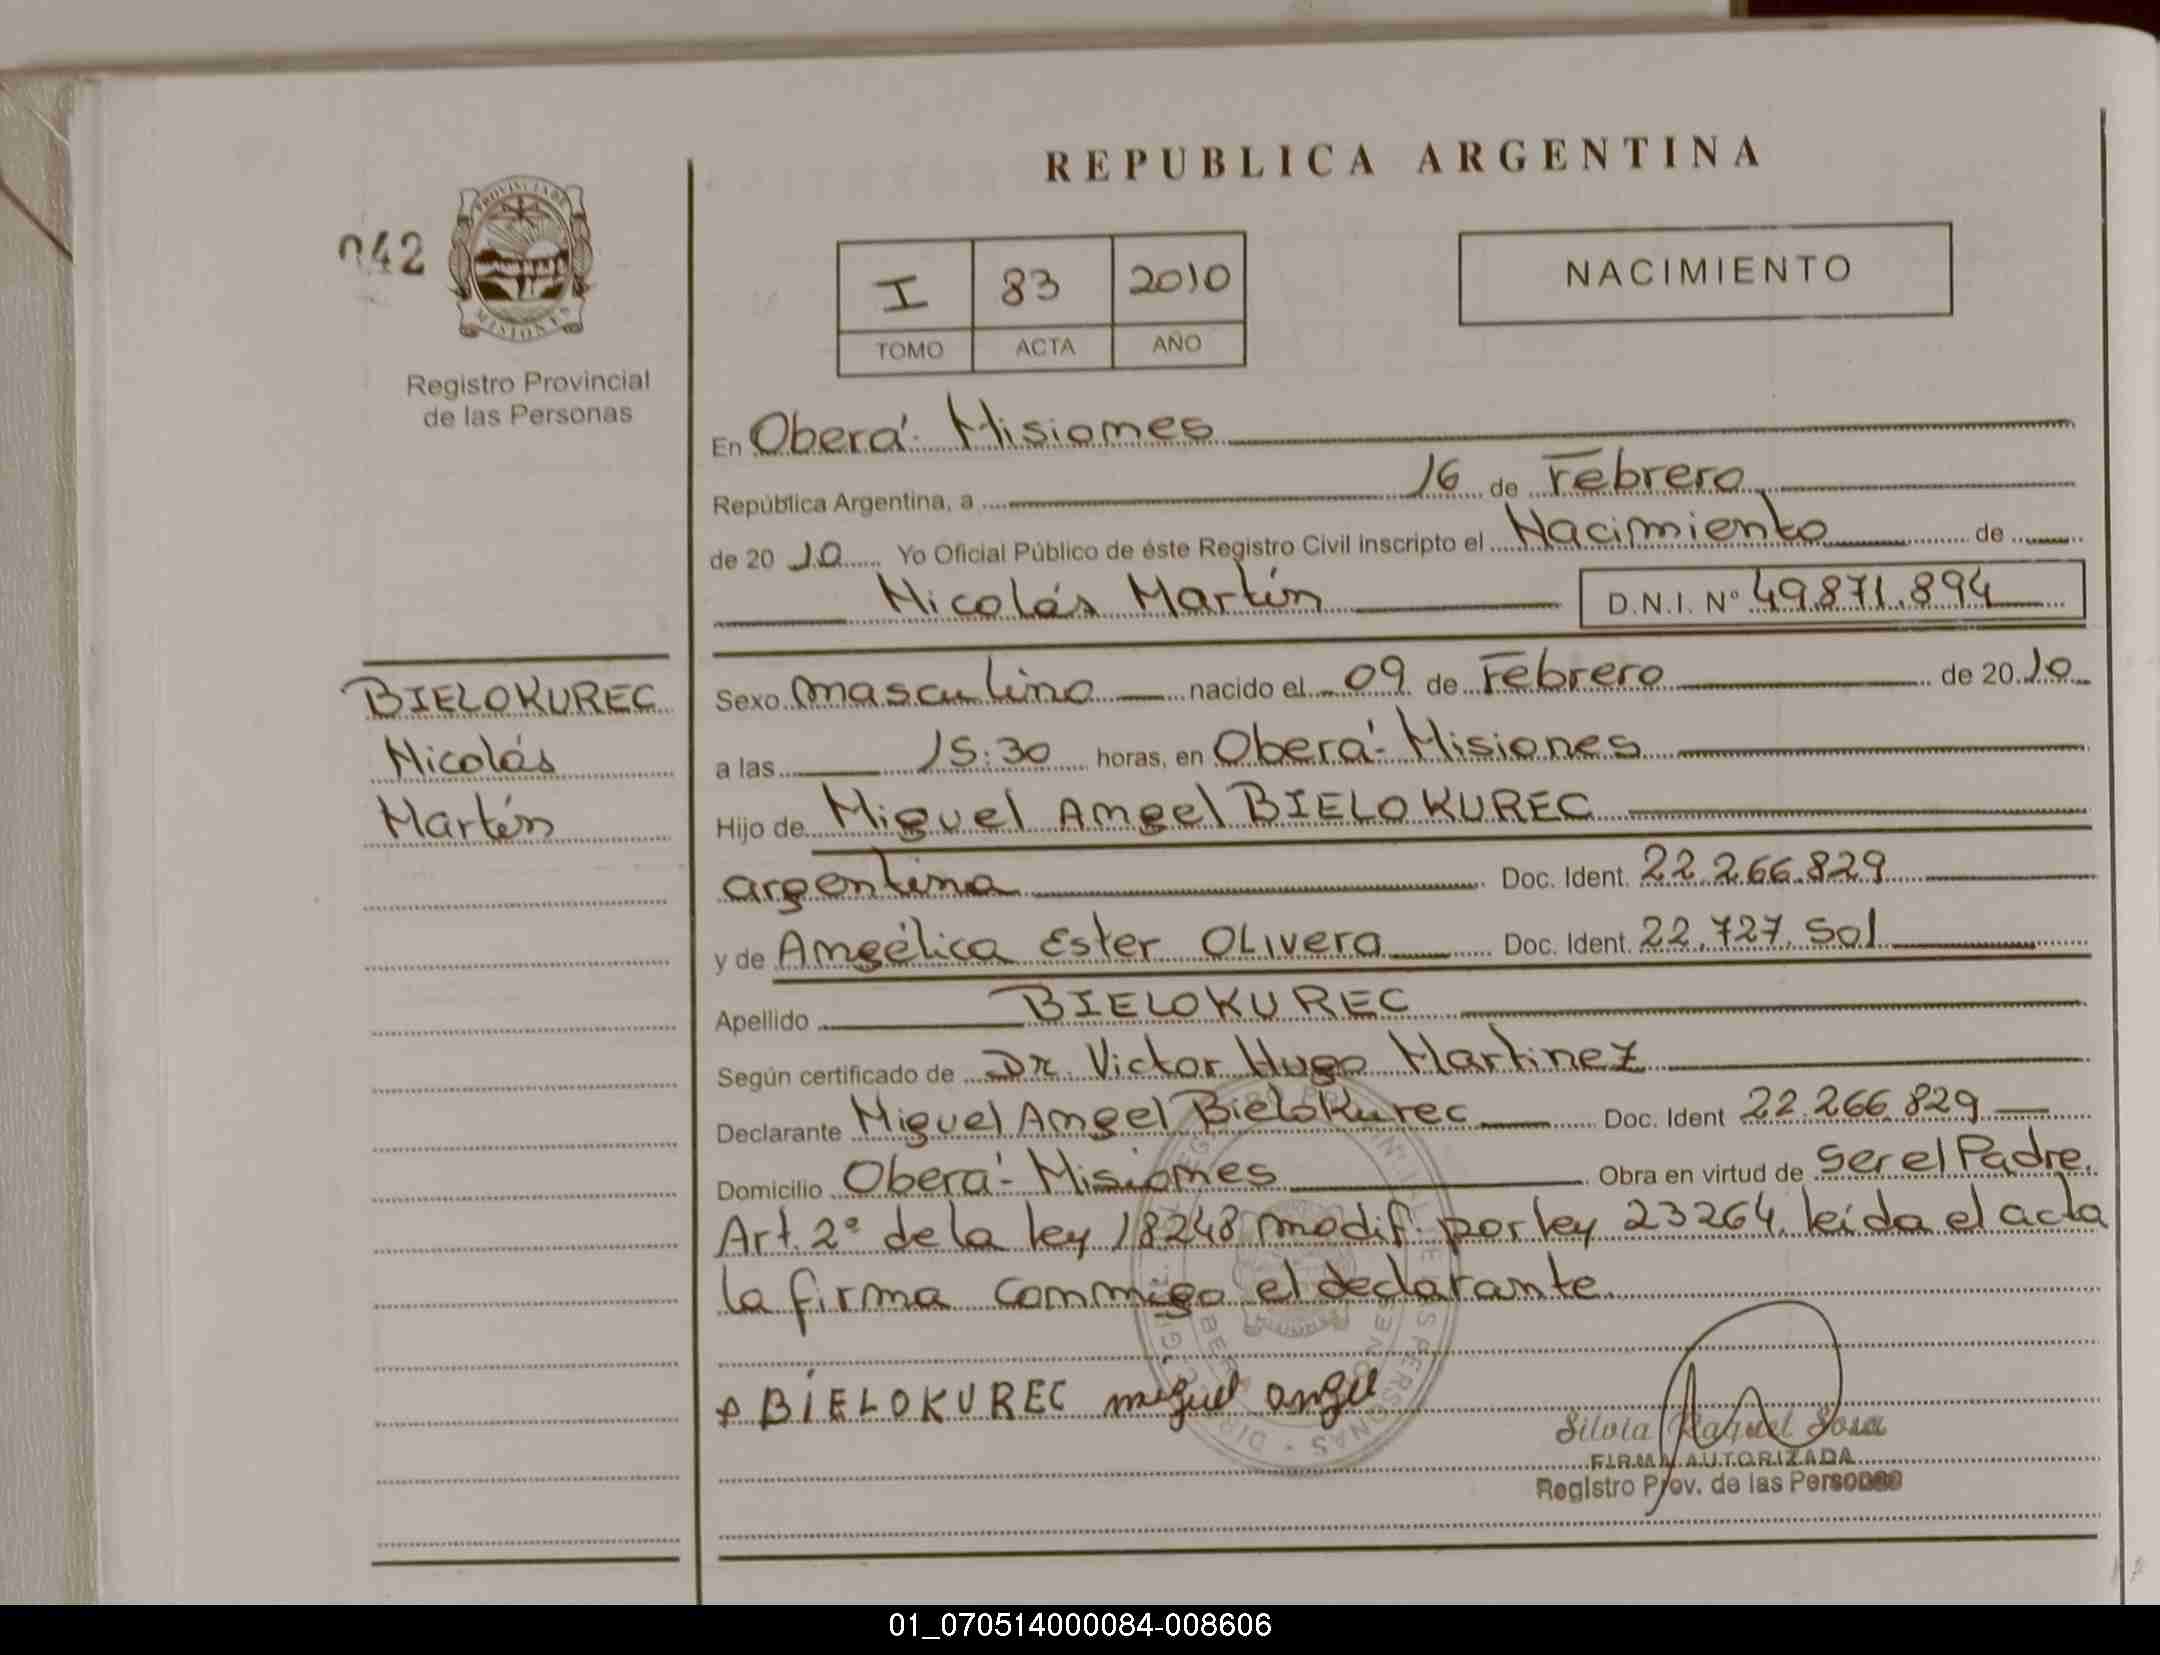 REPUBLICA ARGENTINA
042
PROVINCIA DE
MISIONES
Registro Provincial
de las Personas
I 83 2010
TOMO ACTA AÑO
NACIMIENTO
En Oberá - Misiones
República Argentina, a 16 de Febrero
de 20 10 Yo Oficial Público de éste Registro Civil inscripto el Nacimiento de
Nicolás Martín D.N.I. Nº 49.871.894
BIELOKUREC
Nicolás
Martín
Sexo masculino nacido el 09 de Febrero de 20 10
a las 15:30 horas, en Oberá - Misiones
Hijo de Miguel Angel BIELOKUREC
argentina Doc. Ident. 22.266.829
y de Angélica Ester OLivera Doc. Ident. 22.727.501
Apellido BIELOKUREC
Según certificado de Dr. Victor Hugo Martinez
Declarante Miguel Angel Bielokurec Doc. Ident 22.266.829
Domicilio Oberá - Misiones Obra en virtud de ser el Padre.
Art. 2º de la ley 18248 modif. por ley 23264. leida el acta
la firma conmigo el declarante
BIELOKUREC miguel angel
Silvia Raquel Sosa
FIRMA AUTORIZADA
Registro Prov. de las Personas
01_070514000084-008606